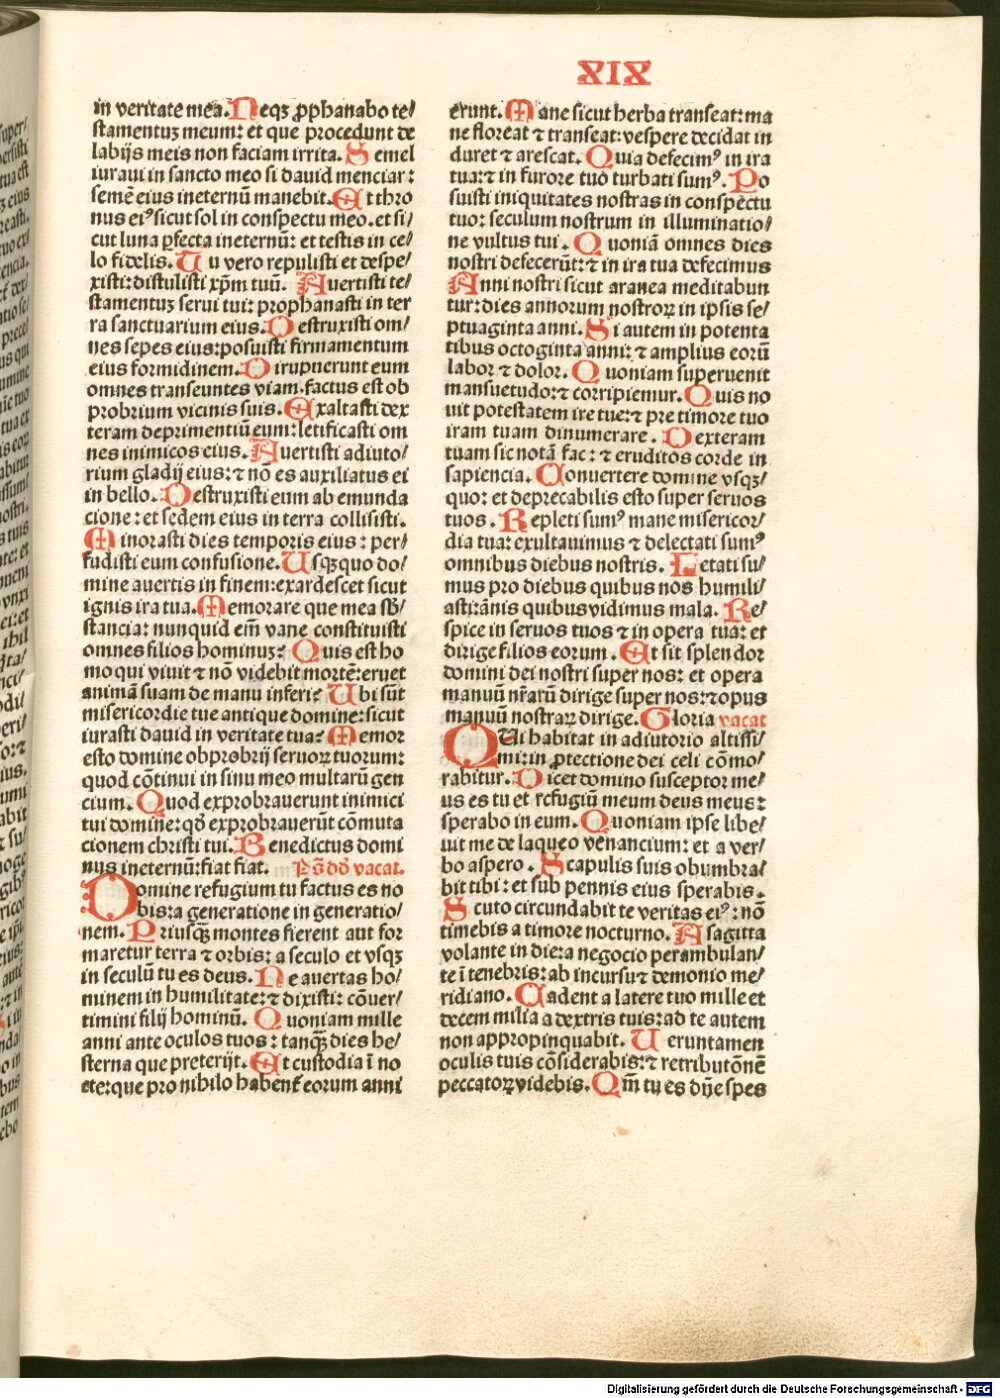 XIX
in veritate mea. Neqꝫ ꝓphanabo te/
stamentuꝫ meum: et que procedunt de
labijs meis non faciam irrita. Semel
iuraui in sancto meo si dauid menciar:
semē eius ineternū manebit. Et thro
nus eiꝰ sicut sol in conspectu meo. et si/
cut luna ꝑfecta ineternū: et testis in ce/
lo fidelis. Tu vero repulisti et despe/
xisti: distulisti xp̄m tuū. Auertisti te/
stamentuꝫ serui tui: prophanasti in ter
ra sanctuarium eius. Destruxisti om/
nes sepes eius: posuisti firmamentum
eius formidinem. Diripuerunt eum
omnes transeuntes viam. factus est ob
probrium vicinis suis. Exaltasti dex
teram deprimentiū eum: letificasti om
nes inimicos eius. Auertisti adiuto/
rium gladij eius: ⁊ nō es auxiliatus ei
in bello. Destruxisti eum ab emunda
cione: et sedem eius in terra collisisti.
Minorasti dies temporis eius: per/
fudisti eum confusione. Usqꝫquo do/
mine auertis in finem: exardescet sicut
ignis ira tua. Memorare que mea sb̄/
stancia: nunquid em̄ vane constituisti
omnes filios hominuꝫ? Quis est ho
mo qui viuit ⁊ nō videbit mortē: eruet
animā suam de manu inferi? Ubi sūt
misericordie tue antique domine: sicut
iurasti dauid in veritate tua? Memor
esto domine obprobrij seruoꝝ tuorum:
quod cōtinui in sinu meo multarū gen
cium. Quod exprobrauerunt inimici
tui domine: qd̄ exprobrauerūt cōmuta
cionem christi tui. Benedictus domi
nus ineternū: fiat fiat. vacat.
Domine refugium tu factus es no
bis: a generatione in generatio/
nem. Priusqꝫ montes fierent aut for
maretur terra ⁊ orbis: a seculo et vsqꝫ
in seculū tu es deus. Ne auertas ho/
minem in humilitate: ⁊ dixisti: cōuer/
timini filij hominū. Quoniam mille
anni ante oculos tuos: tanqꝫ dies he/
sterna que preterijt. Et custodia ī no
cte: que pro nihilo habent̄ eorum anni
erunt. Mane sicut herba transeat: ma
ne floreat ⁊ transeat: vespere decidat in
duret ⁊ arescat. Quia defecimꝰ in ira
tua: ⁊ in furore tuo turbati sumꝰ. Po
suisti iniquitates nostras in conspectu
tuo: seculum nostrum in illuminatio/
ne vultus tui. Quoniā omnes dies
nostri defecerūt: ⁊ in ira tua defecimus
Anni nostri sicut aranea meditabun
tur: dies annorum nostroꝝ in ipsis se/
ptuaginta anni. Si autem in potenta
tibus octoginta anni: ⁊ amplius eorū
labor ⁊ dolor. Quoniam superuenit
mansuetudo: ⁊ corripiemur. Quis no
uit potestatem ire tue: ⁊ pre timore tuo
iram tuam dinumerare. Dexteram
tuam sic notā fac: ⁊ eruditos corde in
sapiencia. Conuertere domine vsqꝫ/
quo: et deprecabilis esto super seruos
tuos. Repleti sumꝰ mane misericor/
dia tua: exultauimus ⁊ delectati sumꝰ
omnibus diebus nostris. Letati su/
mus pro diebus quibus nos humili/
asti: ānis quibus vidimus mala. Re/
spice in seruos tuos ⁊ in opera tua: et
dirige filios eorum. Et sit splendor
domini dei nostri super nos: et opera
manuū nr̄arū dirige super nos: ⁊ opus
manuū nostraꝝ dirige. Gloria vacat
QUi habitat in adiutorio altissi/
mi: in ꝓtectione dei celi cōmo/
rabitur. Dicet domino susceptor me/
us es tu et refugiū meum deus meus:
sperabo in eum. Quoniam ipse libe/
uit me de laqueo venancium: et a ver/
bo aspero. Scapulis suis obumbra/
bit tibi: et sub pennis eius sperabis.
Scuto circundabit te veritas eiꝰ: nō
timebis a timore nocturno. A sagitta
volante in die: a negocio perambulan/
te ī tenebris: ab incursu ⁊ demonio me/
ridiano. Cadent a latere tuo mille et
decem milia a dextris tuis: ad te autem
non appropinquabit. Ueruntamen
oculis tuis cōsiderabis: ⁊ retributōnē
peccatoꝝ videbis. Qm̄ tu es dn̄e spes
Digitalisierung gefördert durch die Deutsche Forschungsgemeinschaft - DFG